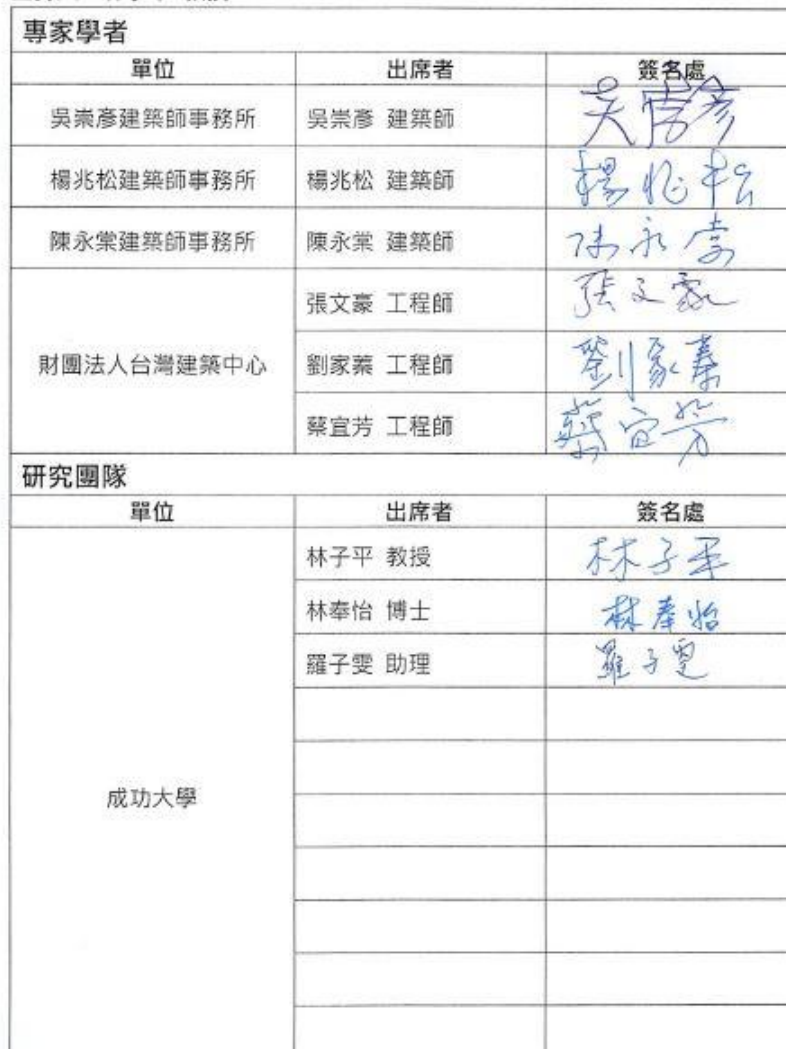 專家學者
單位 出席者 簽名處
吳崇彥建築師事務所 吳崇彥 建築師 吳崇彥
楊兆松建築師事務所 楊兆松 建築師 楊兆松
陳永棠建築師事務所 陳永棠 建築師 陳永棠
張文豪 工程師 張文豪
財團法人台灣建築中心 劉家蓁 工程師 劉家蓁
蔡宜芳 工程師 蔡宜芳
研究團隊
單位 出席者 簽名處
林子平 教授 林子平
林奉怡 博士 林奉怡
羅子雯 助理 羅子雯
成功大學